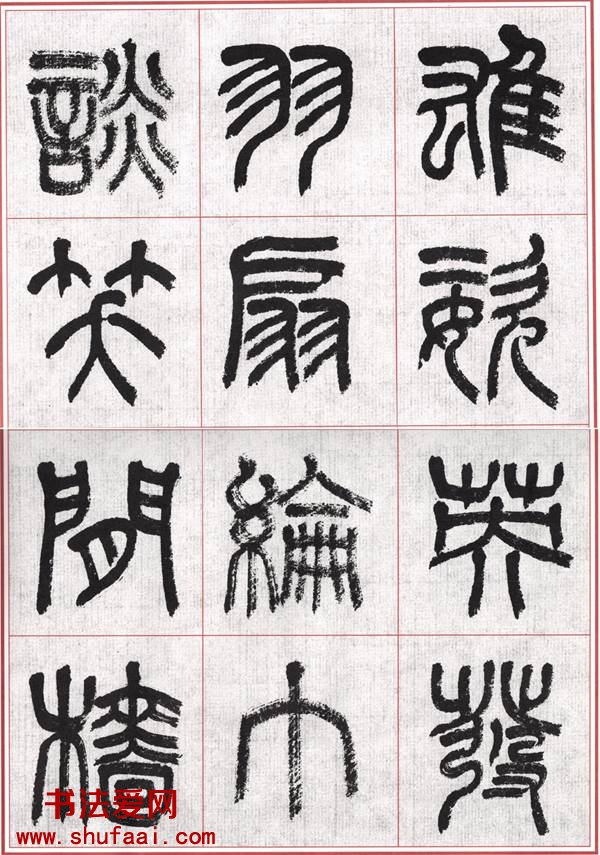 雄姿英發
羽扇綸巾
談笑閒檣
书法爱网
www.shufaai.com